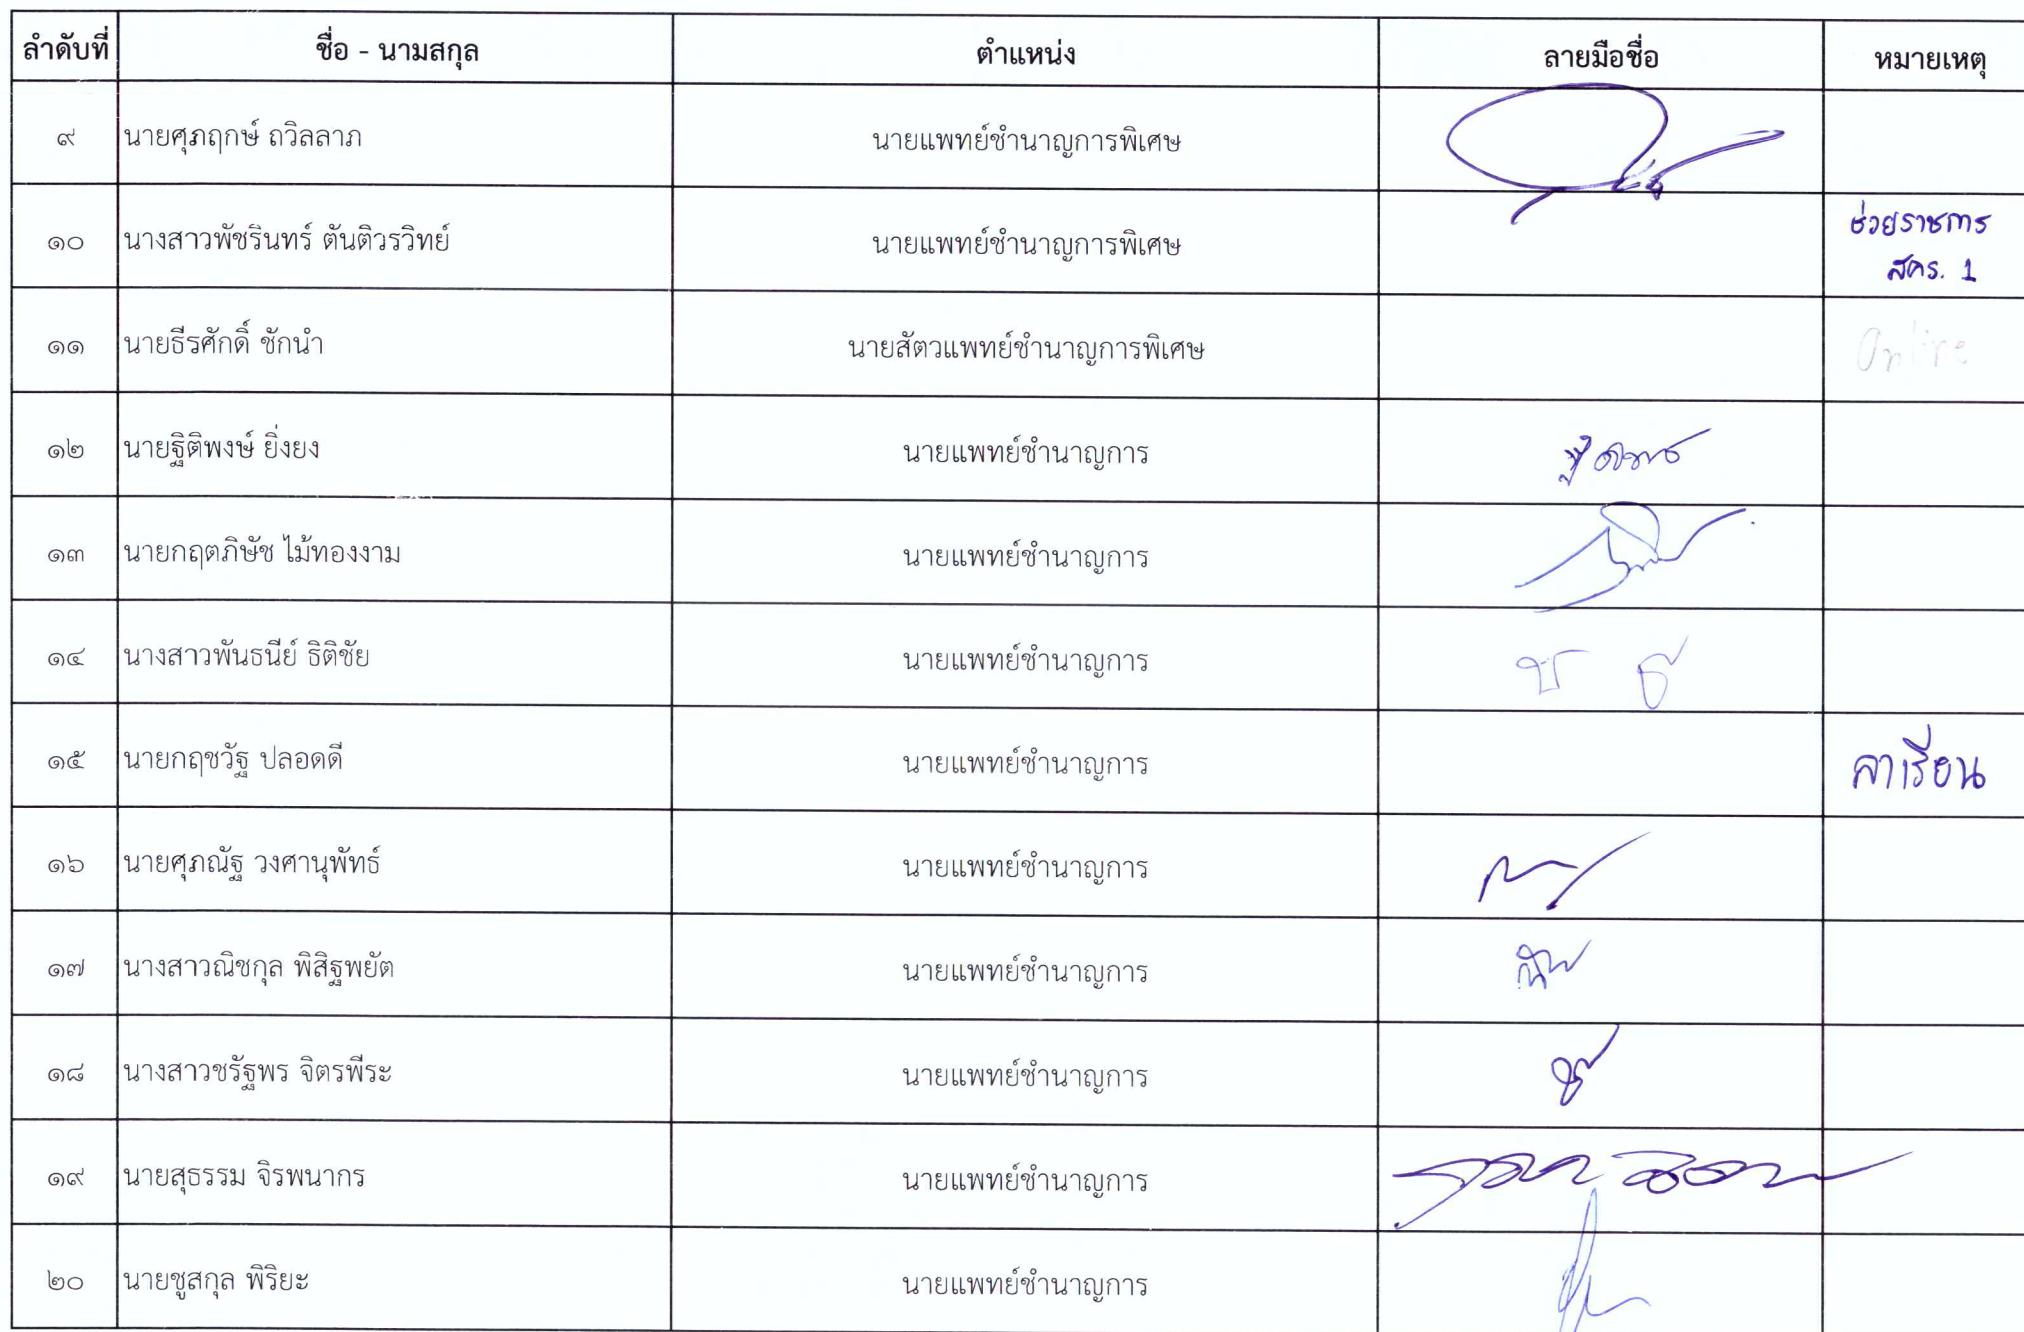 ลำดับที่ ชื่อ - นามสกุล ตำแหน่ง ลายมือชื่อ หมายเหตุ
๙ นายศุภฤกษ์ ถวิลลาภ นายแพทย์ชำนาญการพิเศษ
๑๐ นางสาวพัชรินทร์ ตันติวรวิทย์ นายแพทย์ชำนาญการพิเศษ ช่วยราชการ
สคร. 1
๑๑ นายธีรศักดิ์ ชักนำ นายสัตวแพทย์ชำนาญการพิเศษ Online
๑๒ นายฐิติพงษ์ ยิ่งยง นายแพทย์ชำนาญการ
๑๓ นายกฤตภิษัช ไม้ทองงาม นายแพทย์ชำนาญการ
๑๔ นางสาวพันธนีย์ ธิติชัย นายแพทย์ชำนาญการ
๑๕ นายกฤชวัฐ ปลอดดี นายแพทย์ชำนาญการ ลาเรียน
๑๖ นายศุภณัฐ วงศานุพัทธ์ นายแพทย์ชำนาญการ
๑๗ นางสาวณิชกุล พิสิฐพยัต นายแพทย์ชำนาญการ
๑๘ นางสาวชรัฐพร จิตรพีระ นายแพทย์ชำนาญการ
๑๙ นายสุธรรม จิรพนากร นายแพทย์ชำนาญการ
๒๐ นายชูสกุล พิริยะ นายแพทย์ชำนาญการ